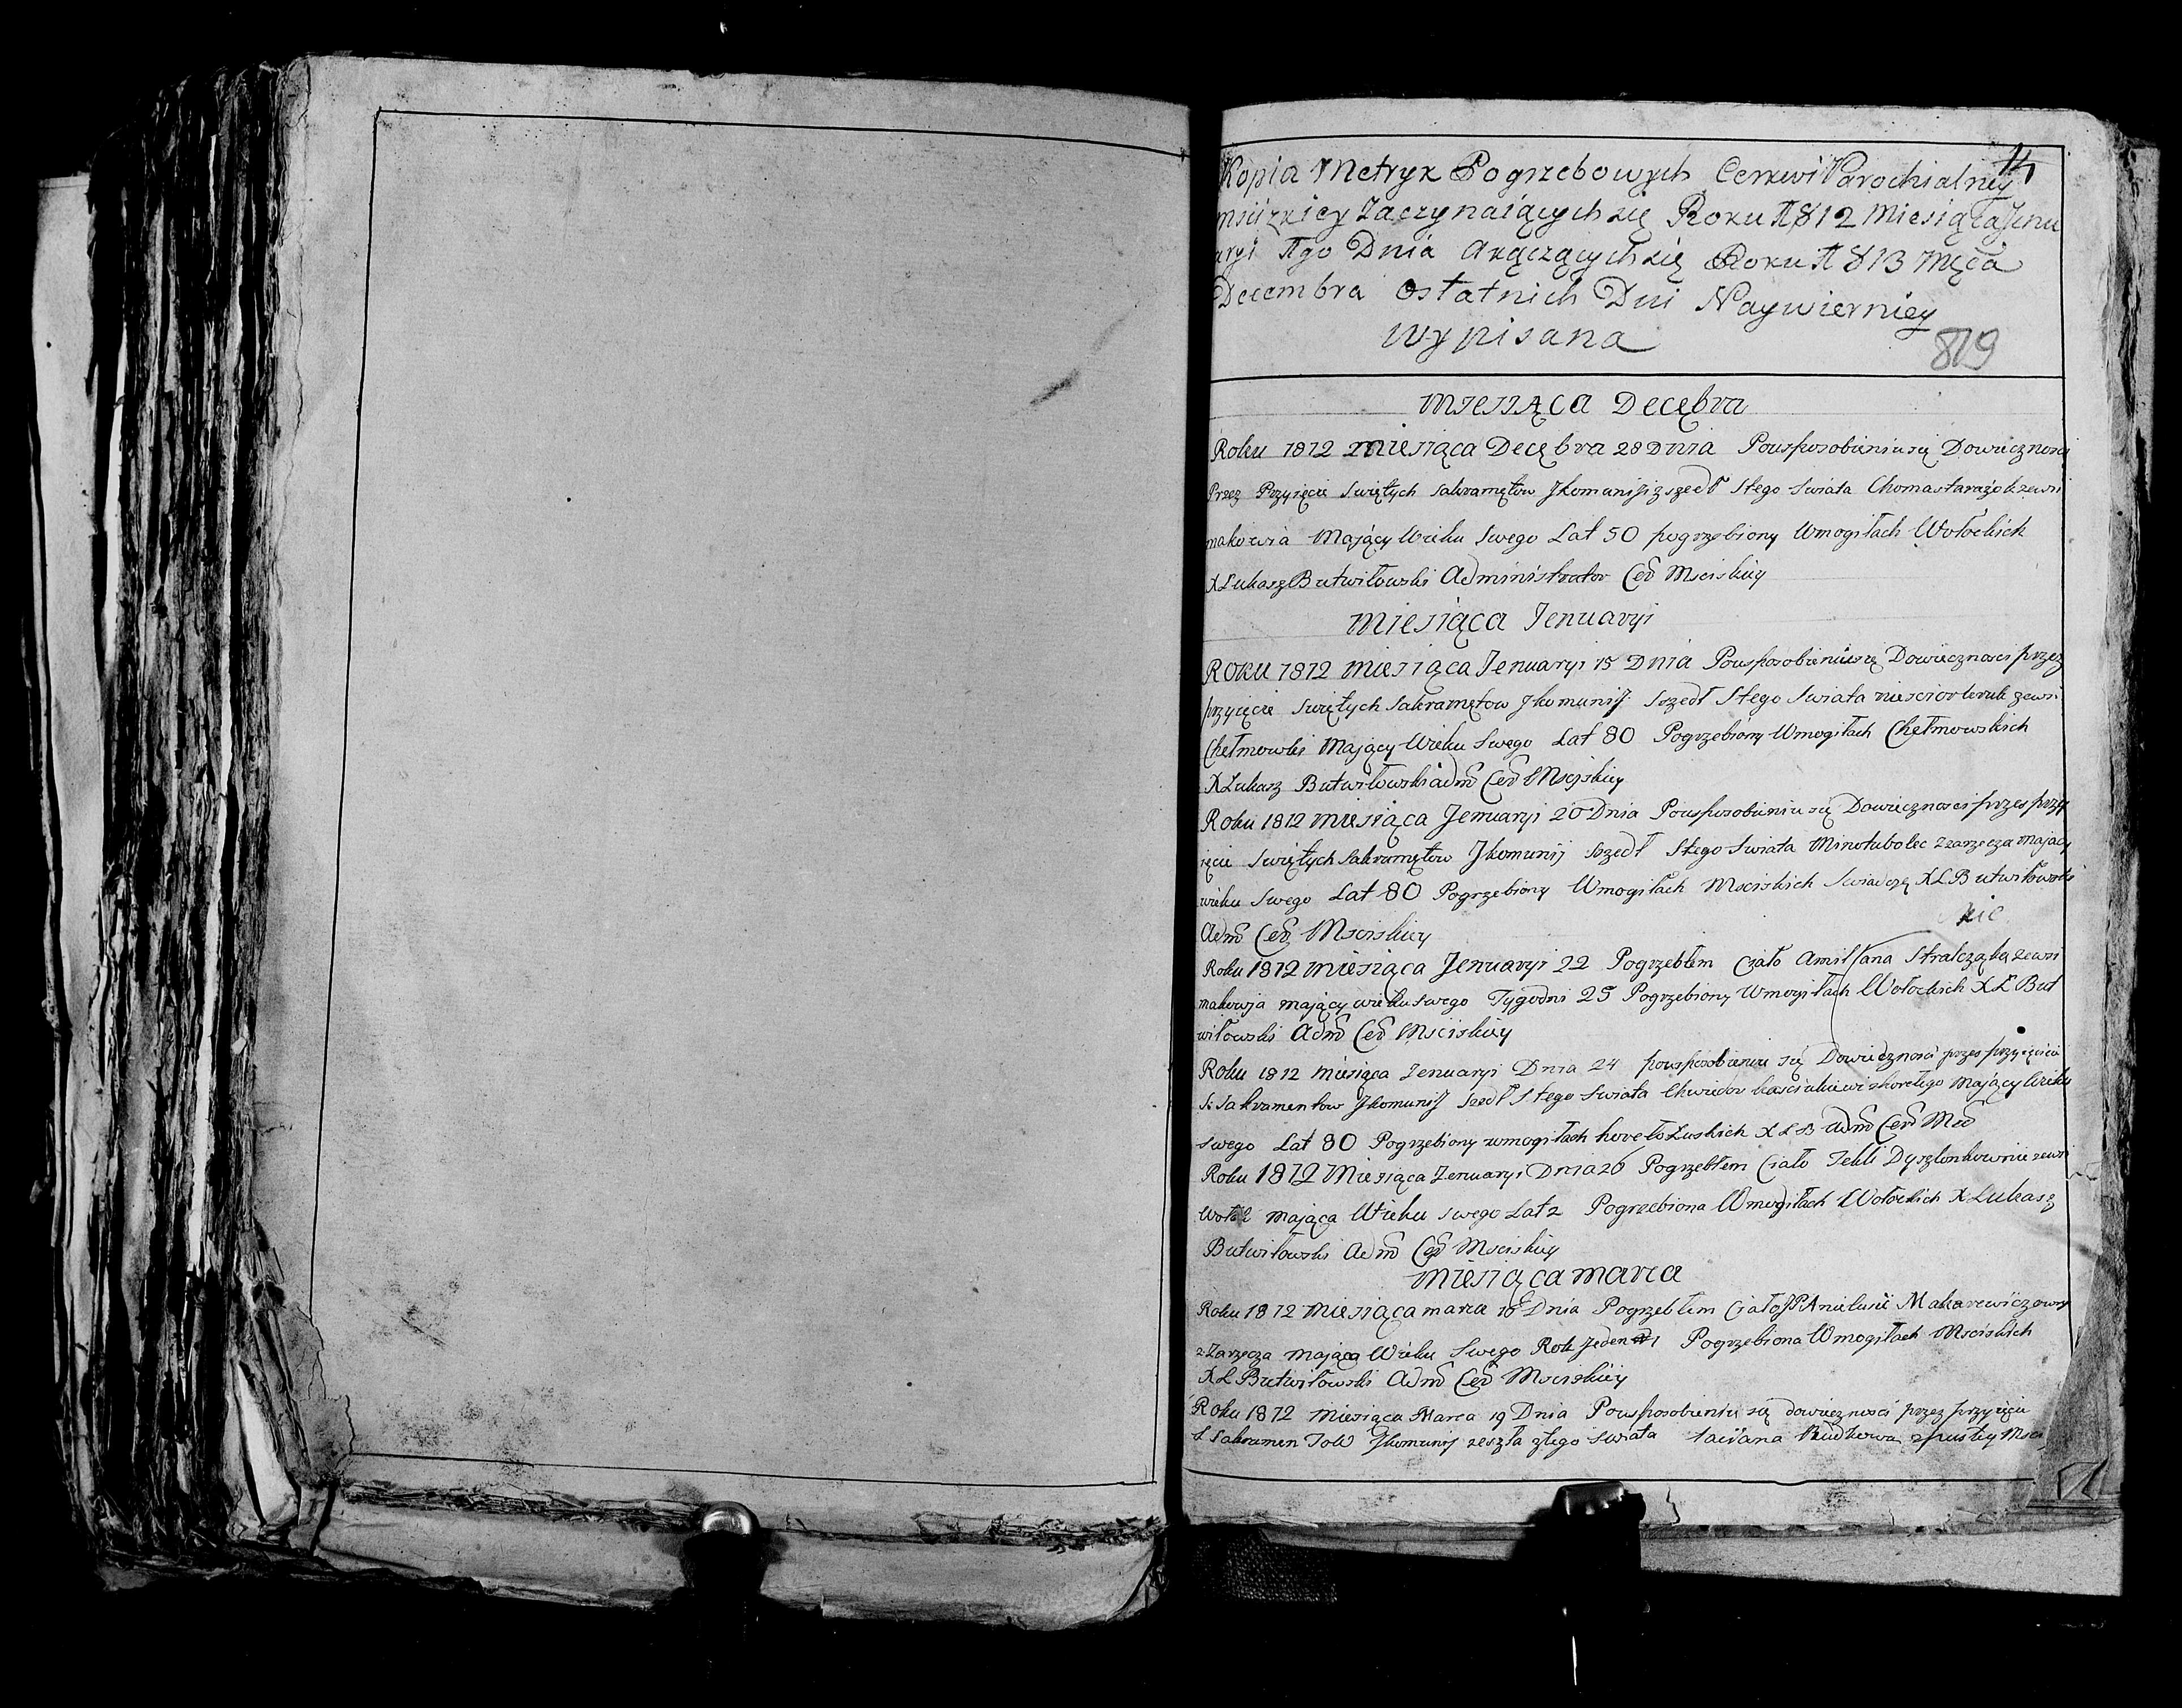 14
Kopia Metryk Pogrzebowych Cerkwi Parochialney
Msciżkiey Zaczynaiących się Roku 1812 Miesiąca Jenu
aryi 1go Dnia a kączących się Roku 1813 Męca
Decembra Ostatnich Dni Naywierniey
wypisana
819
Miesiąca Decębra
Roku 1812 Miesiąca Decębra 28 Dnia Pousposobieniu się Dowiecznosci
Przez Przyięcie Swiętych Sakramętow Jkomunij zszedł Stego Swiata Choma zewsi
makowia Mający Wieku Swego Lat 50 pogrzebiony Wmogiłach Wołockich
X Lukasz Butwiłowski Administrator Cer Msciskiey
Miesiąca Jenuaryi
Roku 1812 Miesiąca Jenuaryi 15 Dnia Pousposobieniu się Dowiecznosci przez
przyięcie Swiętych Sakramętow Jkomunij Szedł Stego Swiata zewsi
Chełmowki Mający Wieku Swego Lat 80 Pogrzebiony Wmogiłach Chełmowskich
X Lukasz Butwiłowski adm Cer Msciskiey
Roku 1812 Miesiąca Jenuaryi 20 Dnia Pousposobieniu się Dowiecznosci przes przy
ięcie Swiętych Sakramętow Jkomunij Szedł Stego Swiata zzarzecza Mający
wieku Swego Lat 80 Pogrzebiony Wmogiłach Msciskich Swiadczę X L Butwiłowski
Adm Cer Msciskiey
Roku 1812 Miesiąca Jenuaryi 22 Pogrzebłem Ciało zewsi
makowja mający wieku swego Tygodni 25 Pogrzebiony Wmogiłach Wołockich X Ł But
wiłowski Adm Cer Msciskiey
Roku 1812 Miesiąca Jenuaryi Dnia 24 pousposobieniu się Dowiecznosci przes przyięcia
S: Sakramentow Jkomunij Szedł Stego Swiata Chwiedor Mający Wieku
swego Lat 80 Pogrzebiony wmogiłach X L B adm Cer Msc
Roku 1812 Miesiąca Jenuaryi Dnia 26 Pogrzebłem Ciało Tekli zewsi
mająca Wieku swego Lat 2 Pogrzebiona Wmogiłach Wołockich X Lukasz
Butwiłowski Adm Cer Msciskiey
Miesiąca Marca
Roku 1812 Miesiąca marca 18 Dnia Pogrzebłem Ciało Makarewiczowny
z Zarzecza mająca Wieku Swego Rok Jeden 1 Pogrzebiona Wmogiłach Msciskich
X L Butwiłowski Adm Cer Msciskiey
Roku 1812 Miesiąca Marca 19 Dnia Pousposobieniu się dowiecznosci przez przyięcie
S Sakramentow Jkomunij zeszła ztego Swiata Rudkowa